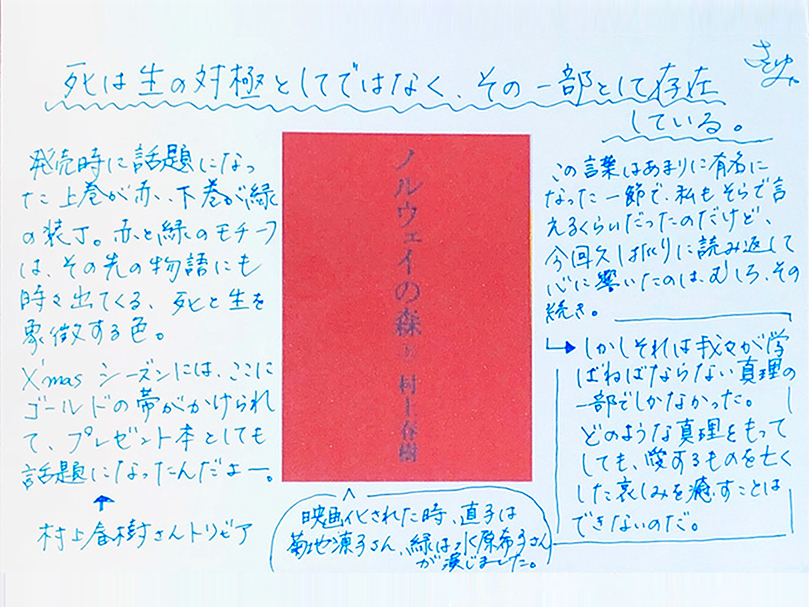 死は生の対極としてではなく、その一部として存在
している。
さとゆみ
発売時に話題になっ
た上巻が赤、下巻が緑
の装丁。赤と緑のモチーフ
は、その先の物語にも
時々出てくる、死と生を
象徴する色。
X'mas シーズンには、ここに
ゴールドの帯がかけられ
て、プレゼント本としても
話題になったんだよー。
村上春樹さんトリビア
ノルウェイの森 上 村上春樹
映画化された時、直子は
菊地凛子さん、緑は水原希子さん
が演じました。
この言葉はあまりに有名に
なった一節で、私もそらで言
えるくらいだったのだけど、
今回久しぶりに読み返して
心に響いたのは、むしろ、その
続き。
しかしそれは我々が学
ばねばならない真理の
一部でしかなかった。
どのような真理をもって
しても、愛するものを亡く
した哀しみを癒すことは
できないのだ。